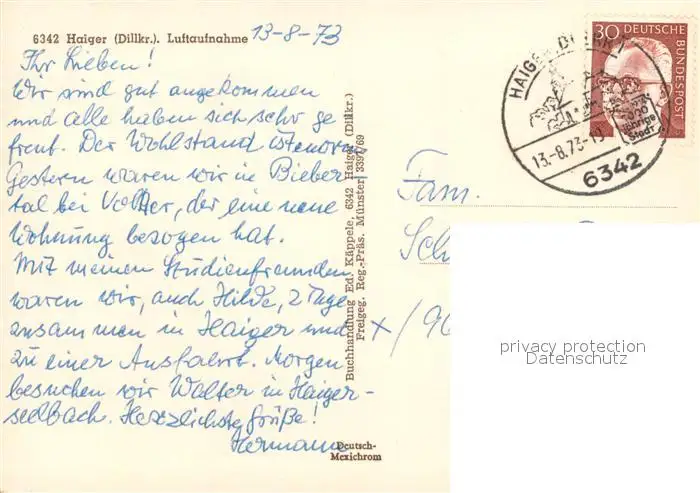 6342 Haiger (Dillkr.). Luftaufnahme
13-8-73
Ihr Lieben!
Wir sind gut angekommen
und alle haben sich sehr ge
freut. Der Wohlstand ist enorm
Gestern waren wir in Bieber
tal bei Volker, der eine neue
Wohnung bezogen hat.
Mit meinen Studienfreunden
waren wir, auch Hilde, 2 Tage
zusammen in Haiger und
zu einer Ausfahrt. Morgen
besuchen wir Walter in Haiger-
seelbach. Herzlichste Grüße!
Hermann
Deutsch-
Mexichrom
Buchhandlung Ed. Käppele, 6342 Haiger (Dillkr.)
Freigeg. Reg.-Präs. Münster 3397/69
HAIGER, DILLKR 1
13.-8.73-19
6342
jährige
Stadt
30 DEUTSCHE
BUNDESPOST
Fam.
Sch
x/96
privacy protection
Datenschutz